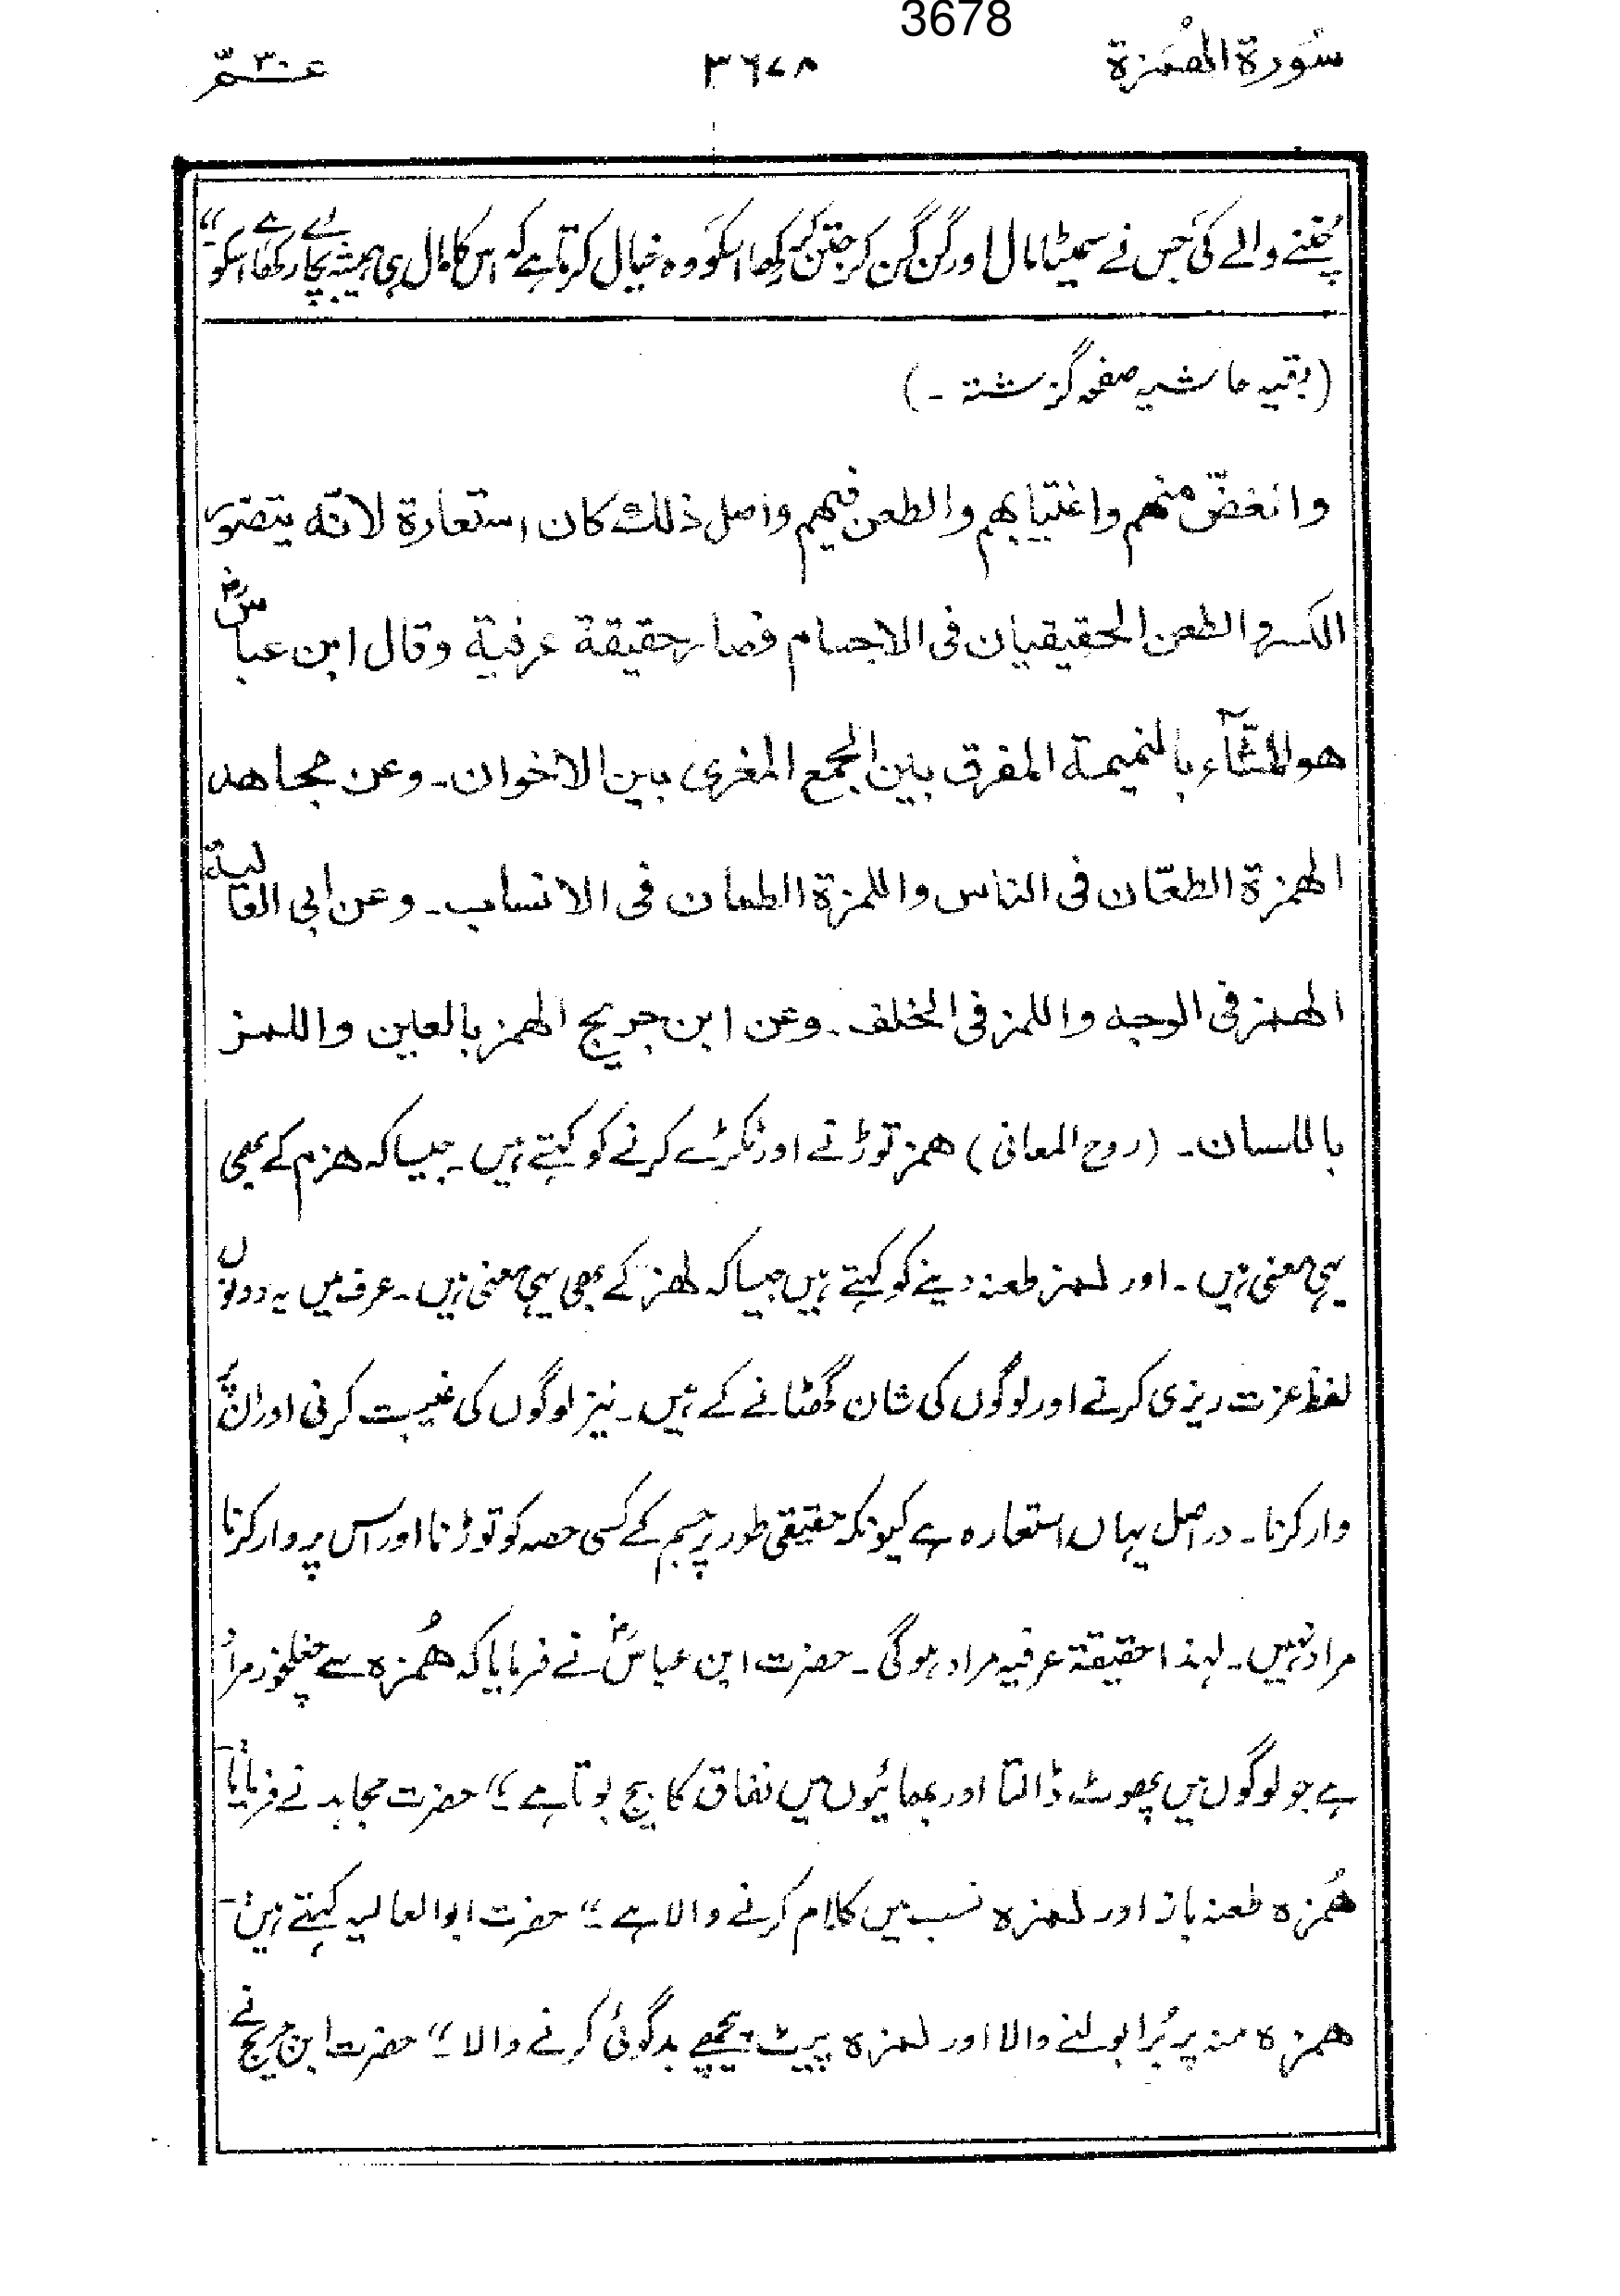 3678
سُورة الھُمَزة ٣٦٧٨ عـمّ ٣٠
چُننے والے کی جس نے سمیٹا مال اور گن گن کر جتن کر رکھا اسکو وہ خیال کرتا ہے کہ اس کا مال ہی ہمیشہ بچائے رکھے گا اسکو“
(بقیہ حاشیہ صفحہ گزشتہ ۔)
وانغضّ منهم واغتيابهم والطعن فيهم واصل ذلك كان استعارة لانّه يتصور
الكسر والطعن الحقيقيان فى الاجسام فصار حقيقة عرفية وقال ابن عباسؓ
هو المشّآء بالنميمة المفرق بين الجمع المغرى بين الاخوان۔ وعن مجاهد
الهمزة الطعّان فى الناس واللمزة الطعان فى الانساب۔ وعن ابى العالية
الهمز فى الوجه واللمز فى الخلف۔ وعن ابن جريج الهمز بالعين واللمز
باللسان۔ (روح المعانى) همز توڑنے اور ٹکڑے کرنے کو کہتے ہیں۔ جیسا کہ هزم کے بھی
یہی معنی ہیں۔ اور لمز طعنہ دینے کو کہتے ہیں جیسا کہ لهز کے بھی یہی معنی ہیں۔ عرف میں یہ دونوں
لفظ عزت ریزی کرنے اور لوگوں کی شان گھٹانے کے ہیں۔ نیز لوگوں کی غیبت کرنی اور ان پر
وار کرنا۔ در اصل یہاں استعارہ ہے کیونکہ حقیقی طور پر جسم کے کسی حصہ کو توڑنا اور اس پر وار کرنا
مراد نہیں۔ لہذا حقیقۃ عرفیہ مراد ہوگی۔ حضرت ابن عباسؓ نے فرمایا کہ هُمزہ سے چغلخور مراد
ہے جو لوگوں میں پھوٹ ڈالتا اور بھائیوں میں نفاق کا بیج بوتا ہے۔“ حضرت مجاہد نے فرمایا۔
هُمزہ طعنہ باز اور لمزہ نسب میں کلام کرنے والا ہے۔“ حضرت ابو العالیہ کہتے ہیں۔
همزہ منہ پر بُرا بولنے والا اور لمزہ پیٹ پیچھے بدگوئی کرنے والا۔“ حضرت ابن جریج نے